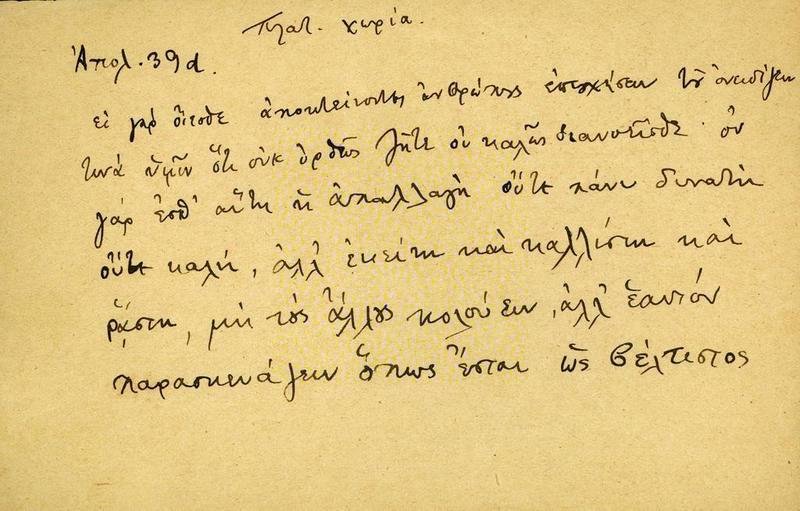 Πλατ. χωρία.
Ἀπολ. 39d.
εἰ γὰρ οἴεσθε ἀποκτείνοντες ἀνθρώπους ἐπισχήσειν τοῦ ὀνειδίζειν
τινά ὑμῖν ὅτι οὐκ ὀρθῶς ζῆτε οὐ καλῶς διανοεῖσθε· οὐ
γάρ ἐσθ' αὕτη ἡ ἀπαλλαγὴ οὔτε πάνυ δυνατὴ
οὔτε καλή, ἀλλ' ἐκείνη καὶ καλλίστη καὶ
ῥᾴστη, μὴ τοὺς ἄλλους κολούειν, ἀλλ' ἑαυτόν
παρασκευάζειν ὅπως ἔσται ὡς βέλτιστος